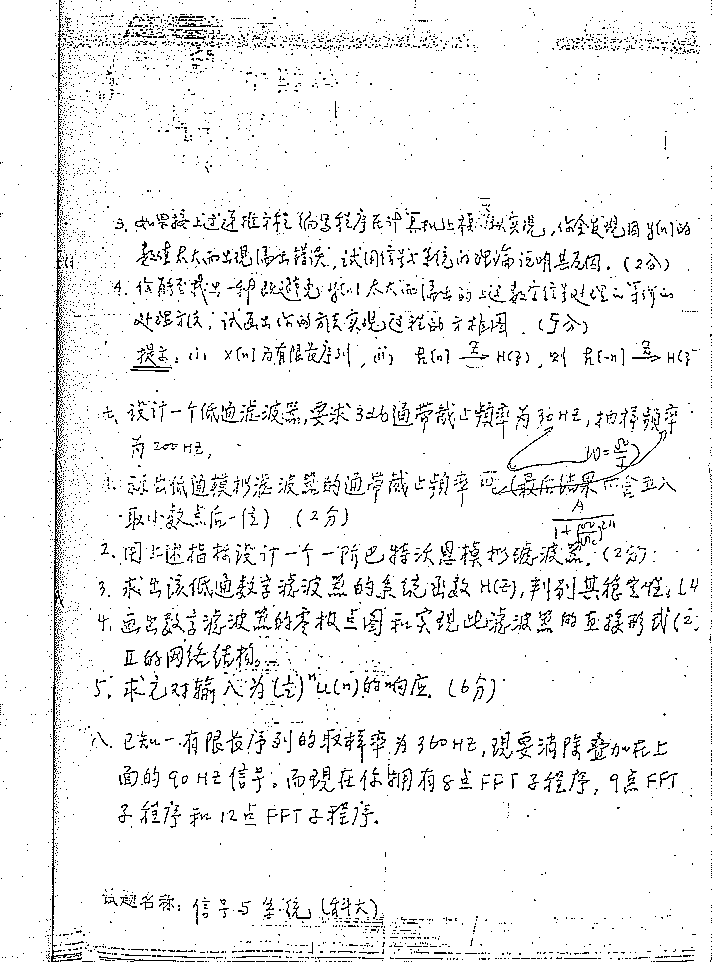 3. 如果按上述递推方程编写程序在计算机上模拟实现，你会发现因y[n]的
数值太大而出现溢出错误，试用信号与系统的理论说明其原因。(2分)
4. 你能否找出一种既避免y[n]太大而溢出的上述数字信号处理的等价的
处理方法，试画出你的方法实现过程的方框图．(5分)
提示：(i) x[n]为有限长序列，(ii) h[n] Z H(z)，则 h[-n] Z H(z
七、设计一个低通滤波器，要求3db通带截止频率为30HZ，抽样频率
为200HZ．
1. 低通模拟滤波器的通带截止频率 (最后结果 入
取小数点后一位) (2分)
2. 用上述指标设计一个一阶巴特沃思模拟滤波器．(2分)
3. 求出该低通数字滤波器的系统函数H(Z)，判别其稳定性。(4
4. 画出数字滤波器的零极点图和实现此滤波器的直接形式(2
II的网络结构。
5. 求它对输入为(½)ⁿu(n)的响应．(6分)
八、已知一有限长序列的取样率为360HZ，现要消除叠加在上
面的90HZ信号。而现在你拥有8点FFT子程序，9点FFT
子程序和12点FFT子程序．
试题名称：信号与系统(科大)